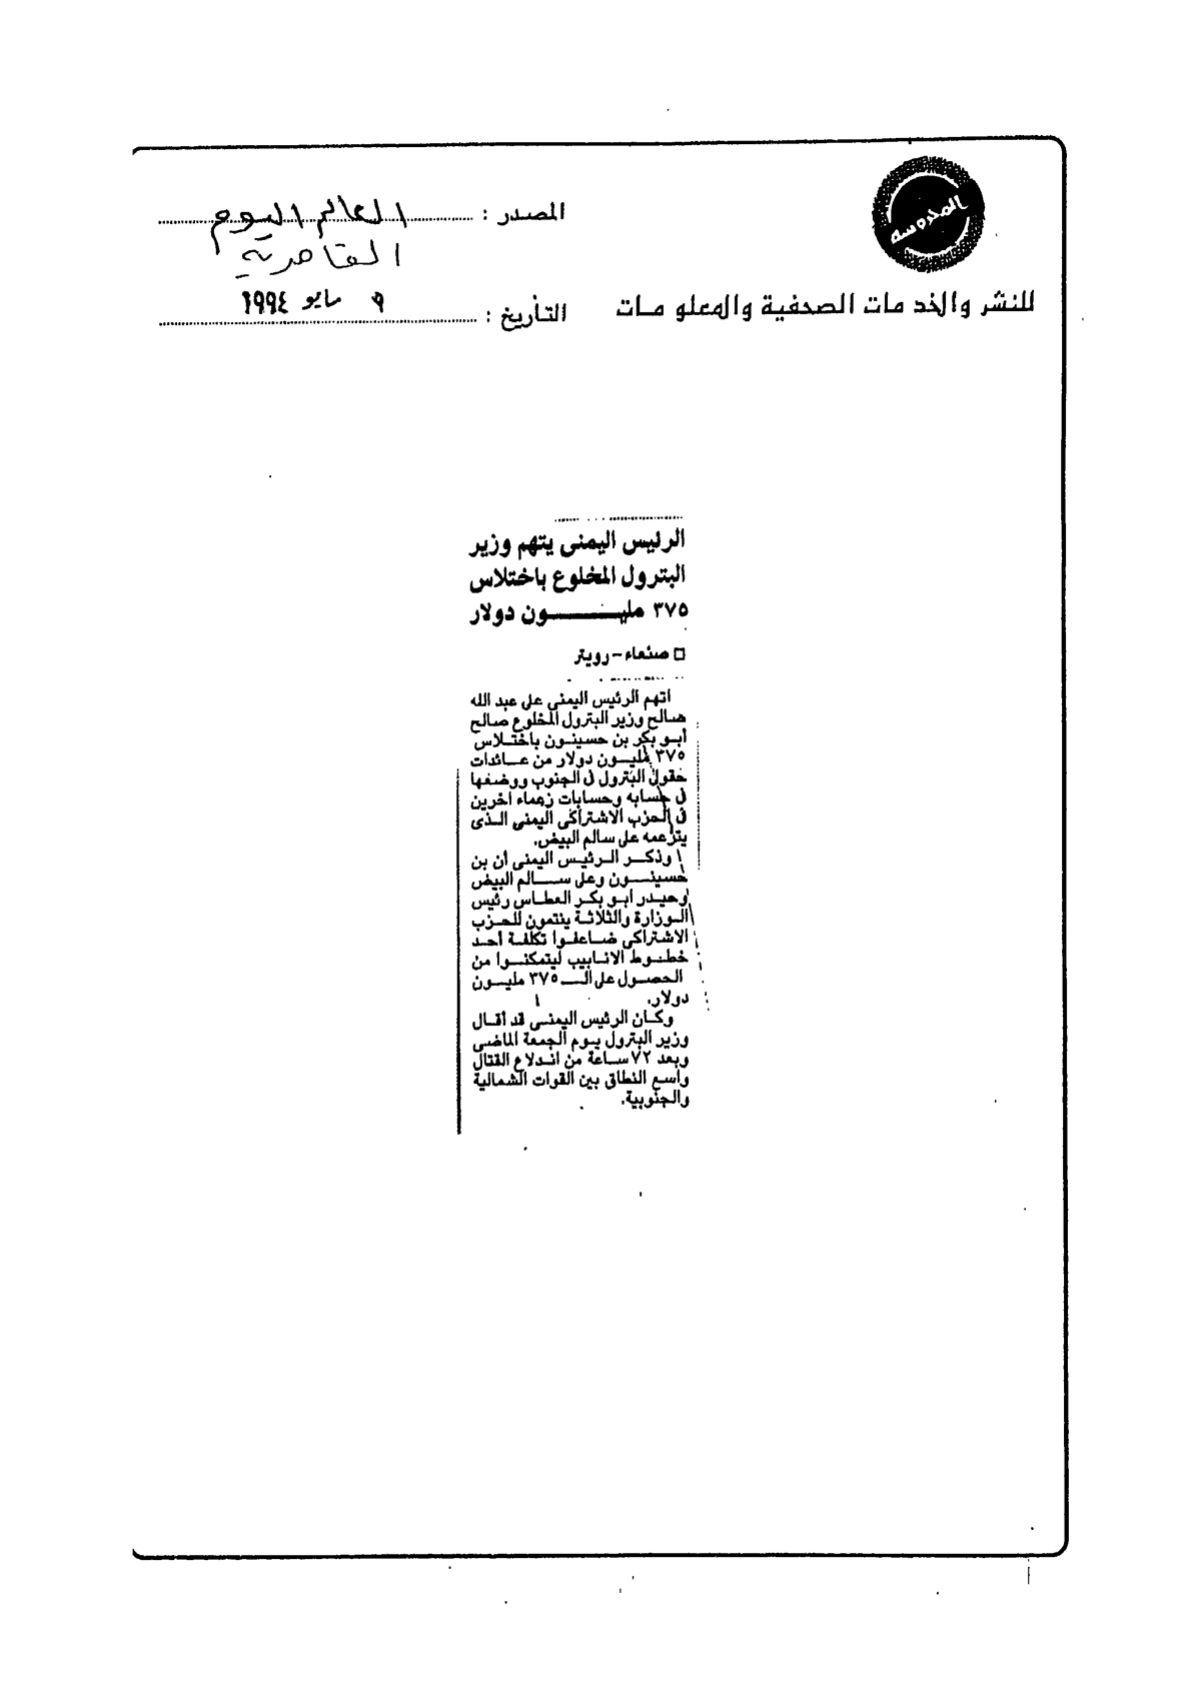 المحروسه
للنشر والخدمات الصحفية والمعلومات
المصدر : العالم اليوم
القاهرية
التأريخ : ٩ مايو ١٩٩٤
الرئيس اليمنى يتهم وزير
البترول المخلوع باختلاس
٣٧٥ مليون دولار
صنعاء - رويتر
اتهم الرئيس اليمنى على عبد الله
صالح وزير البترول المخلوع صالح
أبو بكر بن حسينون باختلاس
٣٧٥ مليون دولار من عائدات
حقول البترول فى الجنوب ووضعها
فى حسابه وحسابات زعماء آخرين
فى الحزب الاشتراكى اليمنى الذى
يتزعمه على سالم البيض.
وذكر الرئيس اليمنى أن بن
حسينون وعلى سالم البيض
وحيدر أبو بكر العطاس رئيس
الوزارة والثلاثة ينتمون للحزب
الاشتراكى ضاعفوا تكلفة أحد
خطوط الانابيب ليتمكنوا من
الحصول على الـ ٣٧٥ مليون
دولار.
وكان الرئيس اليمنى قد أقال
وزير البترول يوم الجمعة الماضى
وبعد ٧٢ ساعة من اندلاع القتال
واسع النطاق بين القوات الشمالية
والجنوبية.